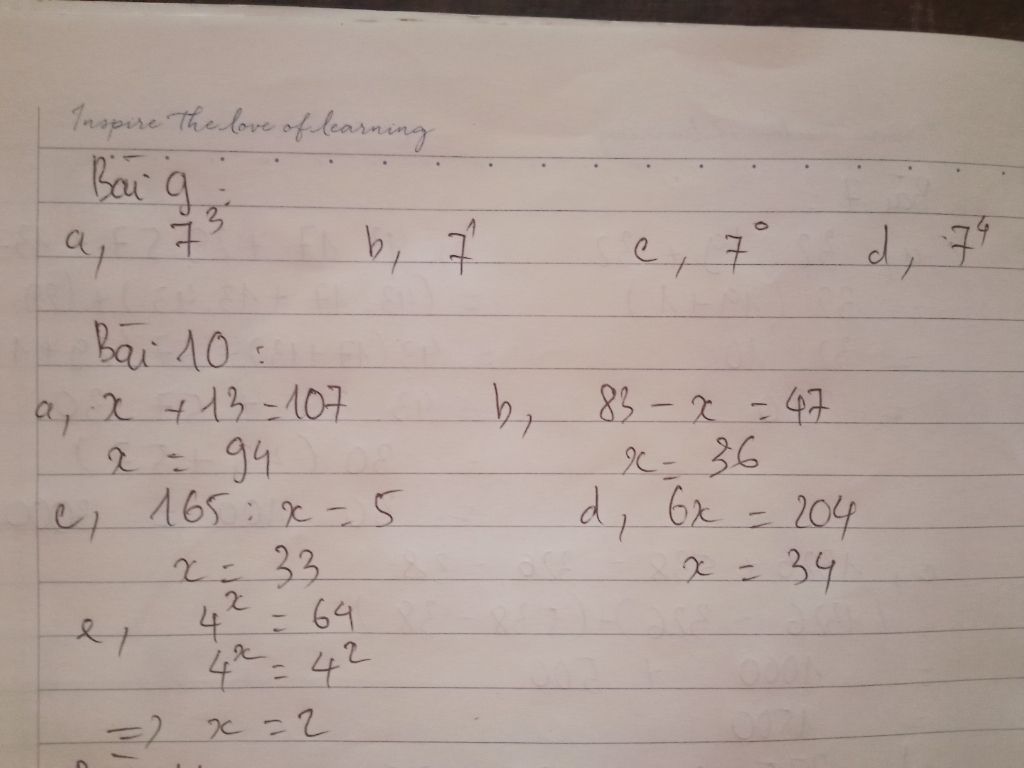 Inspire the love of learning
Bài 9:
a, 7³ b, 7¹ c, 7⁰ d, 7⁴
Bài 10:
a, x + 13 = 107 b, 83 - x = 47
x = 94 x = 36
c, 165 : x = 5 d, 6x = 204
x = 33 x = 34
e, 4ˣ = 64
4ˣ = 4²
=> x = 2